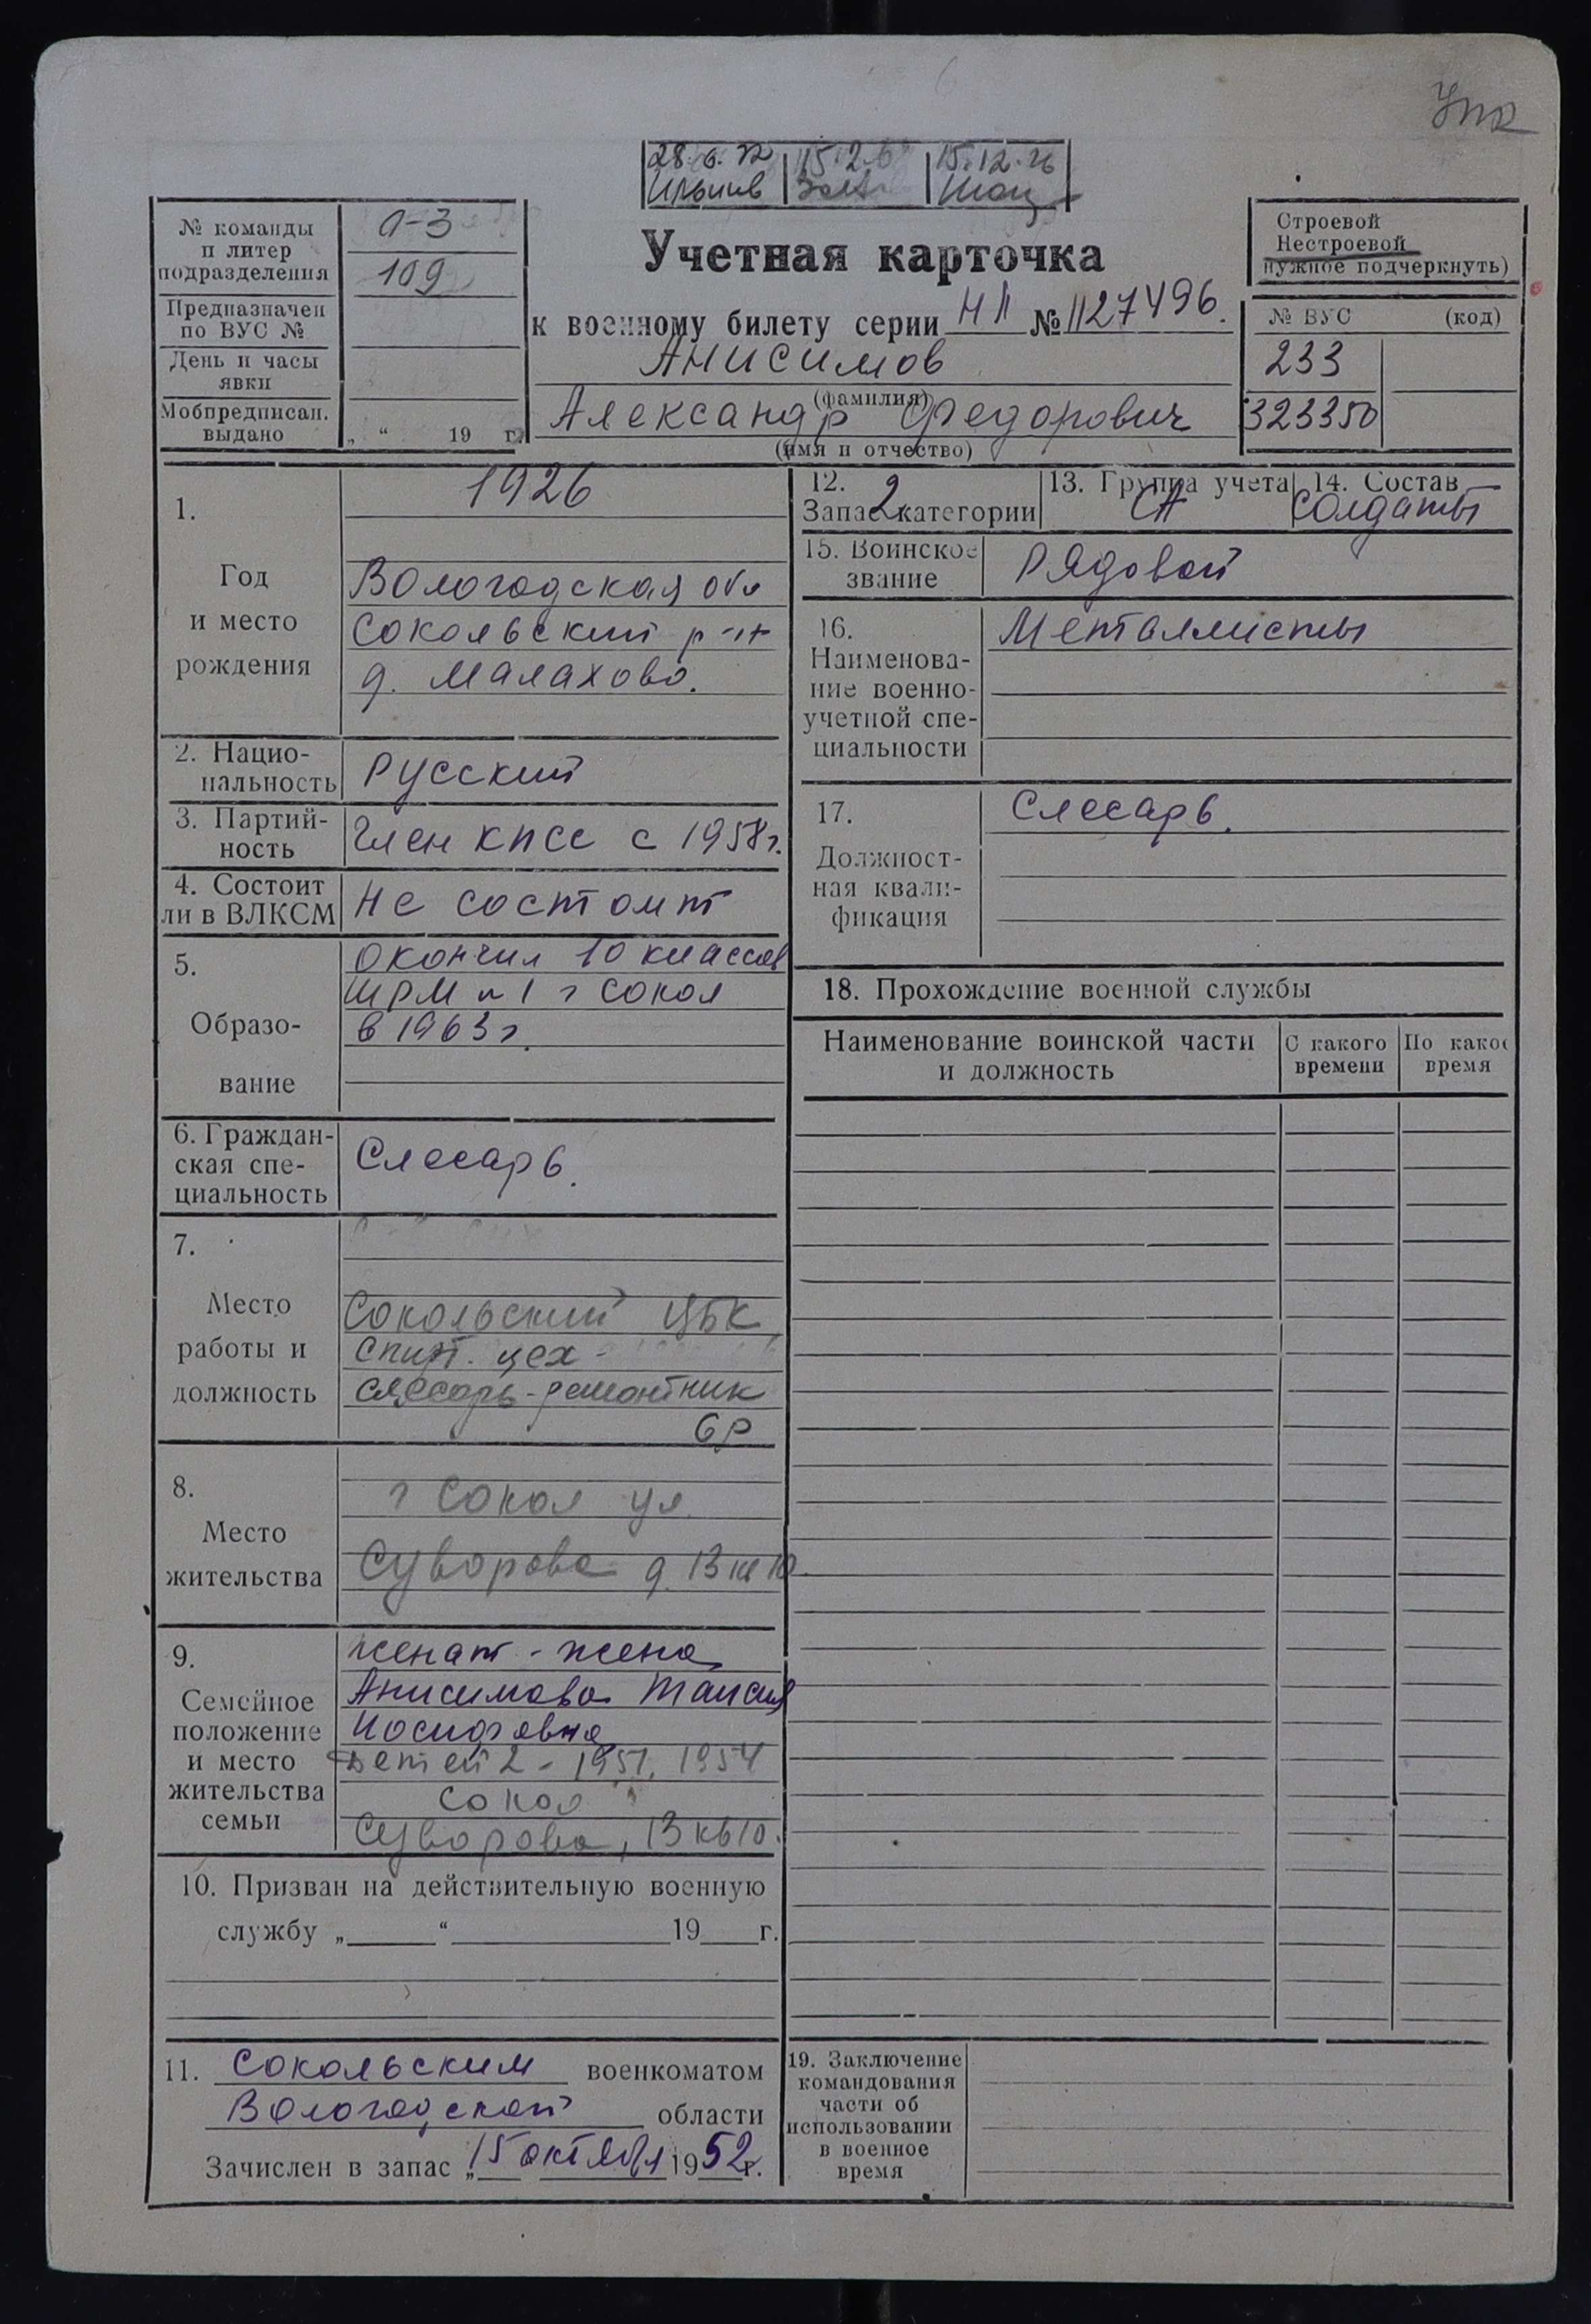 28.6.72
15.12.76
№ команды
и литер
подразделения
0-3
109
Предназначен
по ВУС №
День и часы
явки
Мобпредписан.
выдано
„ “ 19 г.
Учетная карточка
к военному билету серии НЛ № 1127496.
Анисимов
(фамилия)
Александр Федорович
(имя и отчество)
Строевой
Нестроевой
нужное подчеркнуть)
№ ВУС (код)
233
323350
1.
Год
и место
рождения
1926
Вологодская обл
Сокольский р-н
д. Малахово.
2. Нацио-
нальность
Русский
3. Партий-
ность
Член КПСС с 1958 г.
4. Состоит
ли в ВЛКСМ
Не состоит
5.
Образо-
вание
окончил 10 классов
ШРМ №1 г Сокол
в 1963 г.
6. Граждан-
ская спе-
циальность
Слесарь.
7.
Место
работы и
должность
Сокольский ЦБК,
спирт. цех -
слесарь-ремонтник
6р
8.
Место
жительства
г Сокол ул.
Суворова д. 13 кв 10.
9.
Семейное
положение
и место
жительства
семьи
женат - жена
Анисимова Таисия
Иосифовна
Детей 2 - 1951, 1954
Сокол
Суворова, 13 кв 10.
10. Призван на действительную военную
службу „ “ 19 г.
11. Сокольским военкоматом
Вологодской области
Зачислен в запас „15 октября 1952 г.
12.
Запас 2 категории
13. Группа учета
СА
14. Состав
солдаты
15. Воинское
звание
Рядовой
16.
Наименова-
ние военно-
учетной спе-
циальности
Металлисты
17.
Должност-
ная квали-
фикация
Слесарь.
18. Прохождение военной службы
Наименование воинской части
и должность
С какого
времени
По какое
время
19. Заключение
командования
части об
использовании
в военное
время